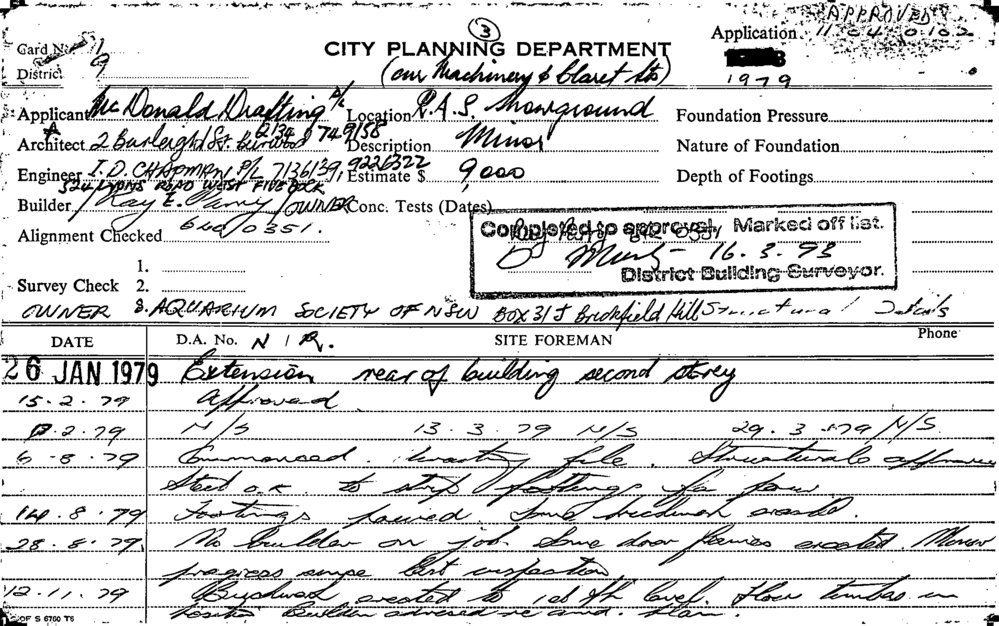 APPROVED
Card No.
CITY PLANNING DEPARTMENT
Application 11 04 0102
District 9
(cnr Machinery & Claret Sts)
1979
Applicant Mc Donald Drafting P/L Location R.A.S. Showground Foundation Pressure
Architect 2 Burleigh St. Burwood 2134 749158 Description Minor Nature of Foundation
Engineer I.D. CHAPMAN P/L 7136139, 9226322 Estimate $ 9,000 Depth of Footings
524 LYONS ROAD WEST FIVE DOCK
Builder / Ray E. / OWNER Conc. Tests (Dates)
Alignment Checked 642/0351.
Completed to approval, Marked off list.
16.3.93
District Building Surveyor.
1.
Survey Check 2.
OWNER 3. AQUARIUM SOCIETY OF NSW BOX 31 J Brickfield Hill Structural Details
DATE D.A. No. N/R. SITE FOREMAN Phone
26 JAN 1979 Extension rear of building second storey
15.2.79 Approved
2.79 N/S 13.3.79 N/S 29.3.79 N/S.
6.8.79 Commenced. file. Structurals
Steel O.K. to strip footings for pour
14.8.79 Footings poured. Some brickwork erected.
28.8.79 No builder on job. Some door frames erected. Minor
progress since last inspection
12.11.79 Brickwork erected to 1st flr level. Floor timbers in
position Builder advised re amd. plan.
OF S 6760 T6